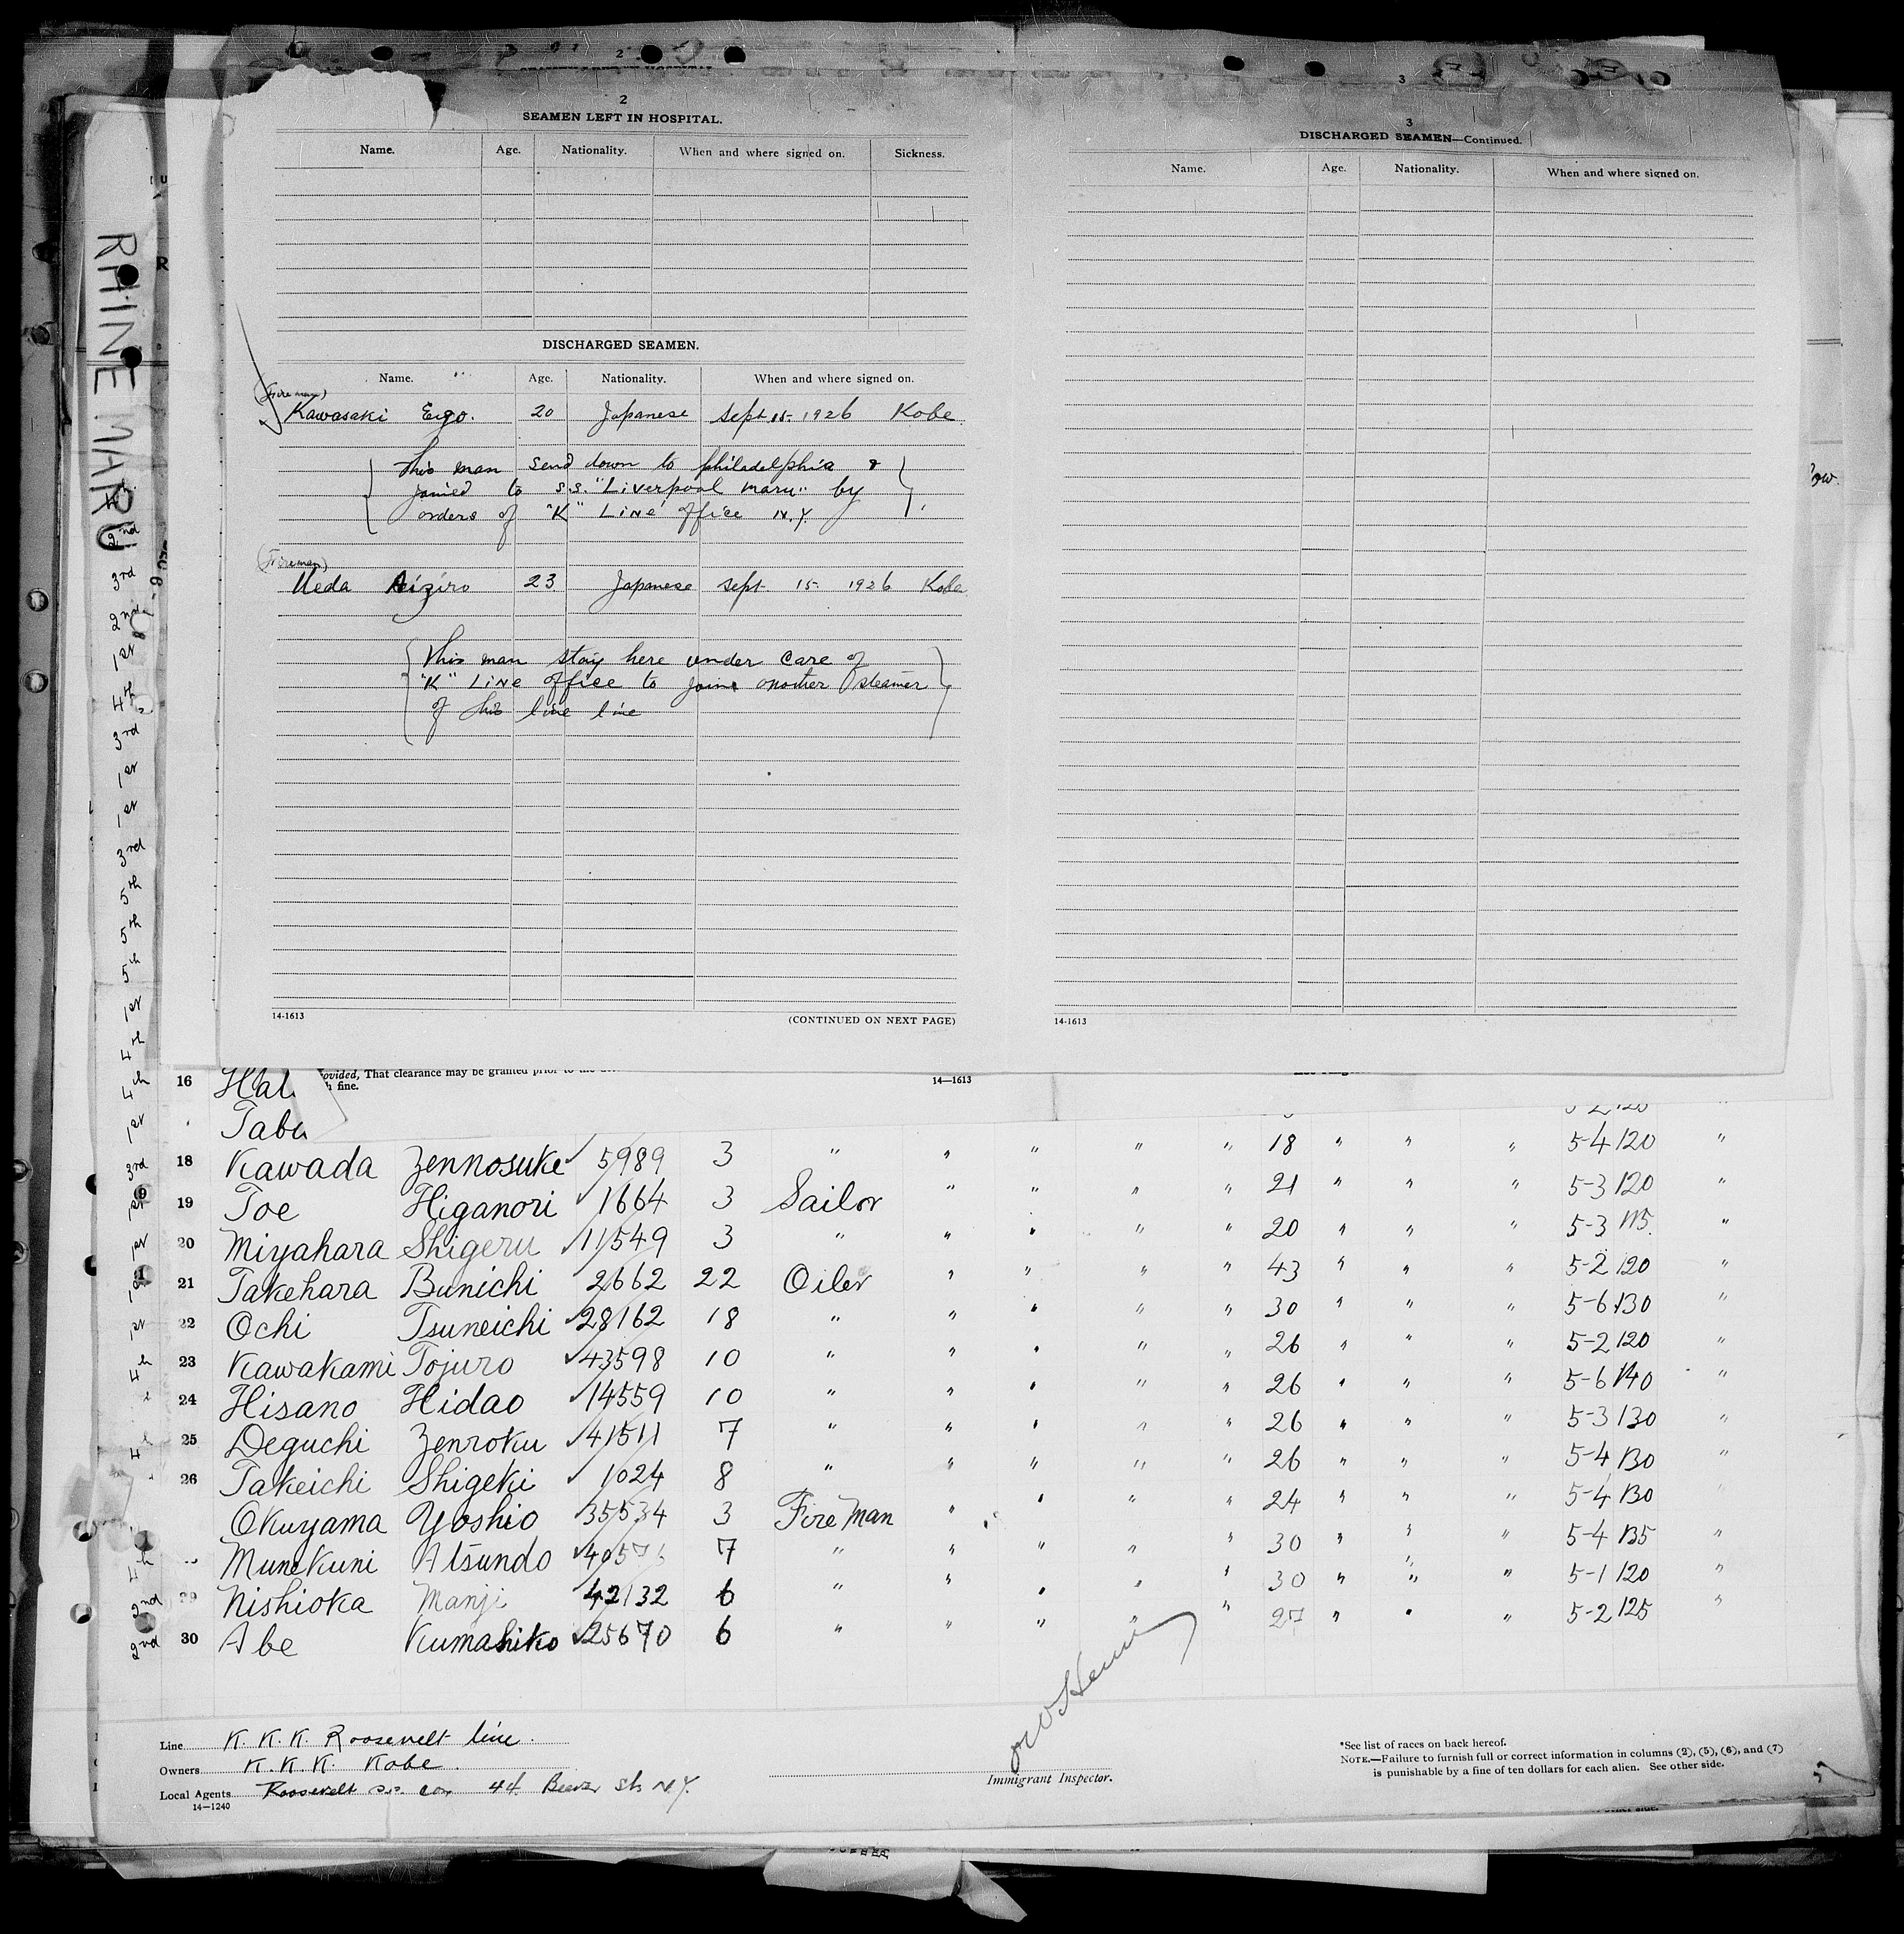 RHINE MARU
2
SEAMEN LEFT IN HOSPITAL.
Name. Age. Nationality. When and where signed on. Sickness.
DISCHARGED SEAMEN.
Name. Age. Nationality. When and where signed on.
(Fireman)
Kawasaki Eigo. 20 Japanese Sept 15- 1926 Kobe
This man send down to Philadelphia &
joined to S.S. "Liverpool Maru" by
orders of "K" LINE office N.Y.
(Fireman)
Ueda Aiziro 23 Japanese Sept 15- 1926 Kobe
This man stay here under care of
"K" LINE office to join another steamer
of this line line
14-1613 (CONTINUED ON NEXT PAGE)
3
DISCHARGED SEAMEN—Continued.
Name. Age. Nationality. When and where signed on.
14-1613
ovided, That clearance may be granted prior to the
h fine.
14—1613
16
Tabu
18 Kawada Zennosuke 5989 3 " " " " " 18 " " " 5-4 120 "
19 Toe Higanori 1664 3 Sailor " " " " 21 " " " 5-3 120 "
20 Miyahara Shigeru 11549 3 " " " " " 20 " " " 5-3 115 "
21 Takehara Bunichi 2662 22 Oiler " " " " 43 " " " 5-2 120 "
22 Ochi Tsuneichi 28162 18 " " " " " 30 " " " 5-6 130 "
23 Kawakami Tojuro 43598 10 " " " " " 26 " " " 5-2 120 "
24 Hisano Hidao 14559 10 " " " " " 26 " " " 5-6 140 "
25 Deguchi Zenroku 41511 7 " " " " " 26 " " " 5-3 130 "
26 Takeichi Shigeki 1024 8 " " " " " 26 " " " 5-4 130 "
Okuyama Yoshio 35534 3 Fire Man " " " " 24 " " " 5-4 130 "
Munekuni Atsundo 7 " " " " " 30 " " " 5-4 135 "
Nishioka Manji 42132 6 " " " " " 30 " " " 5-1 120 "
30 Abe Kumahiko 25670 6 " " " " " 27 " " " 5-2 125 "
Line K. K. K. Roosevelt line.
Owners K. K. K. Kobe.
Local Agents Roosevelt s.s. co. 44 Beaver St N.Y.
14—1240
Immigrant Inspector.
*See list of races on back hereof.
NOTE.—Failure to furnish full or correct information in columns (2), (5), (6), and (7)
is punishable by a fine of ten dollars for each alien. See other side.